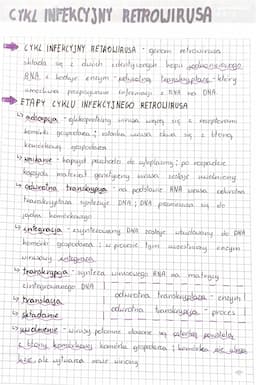 CYKL INFEKCYJNY RETROWIRUSA
CYKL INFEKCYJNY RETROWIRUSA - genom retrowirusa
składa się z dwóch identycznych kopii jednoniciowego
RNA i koduje enzym - odwrotną transkryptazę - który
umożliwia przepisanie informacji z RNA na DNA.
ETAPY CYKLU INFEKCYJNEGO RETROWIRUSA
↳ adsorpcja - glikoproteiny wirusa wiążą się z receptorami
komórki gospodarza; osłonka wirusa zlewa się z błoną
komórkową gospodarza
↳ wnikanie - kapsyd przechodzi do cytoplazmy; po rozpadzie
kapsydu materiał genetyczny wirusa zostaje uwolniony
↳ odwrotna transkrypcja - na podstawie RNA wirusa odwrotna
transkryptaza syntezuje DNA; DNA przemieszcza się do
jądra komórkowego
↳ integracja - zsyntezowany DNA zostaje wbudowany do DNA
komórki gospodarza; w procesie tym uczestniczy enzym
wirusowy integraza
↳ transkrypcja - synteza wirusowego RNA na matrycy
zintegrowanego DNA
↳ translacja
odwrotna transkryptaza - enzym
↳ składanie
odwrotna transkrypcja - proces
↳ uwolnienie - wirusy potomne otoczone są osłonką powstałą
z błony komórkowej komórki gospodarza; komórka nie ulega
lizie, ale wytwarza nowe wiriony